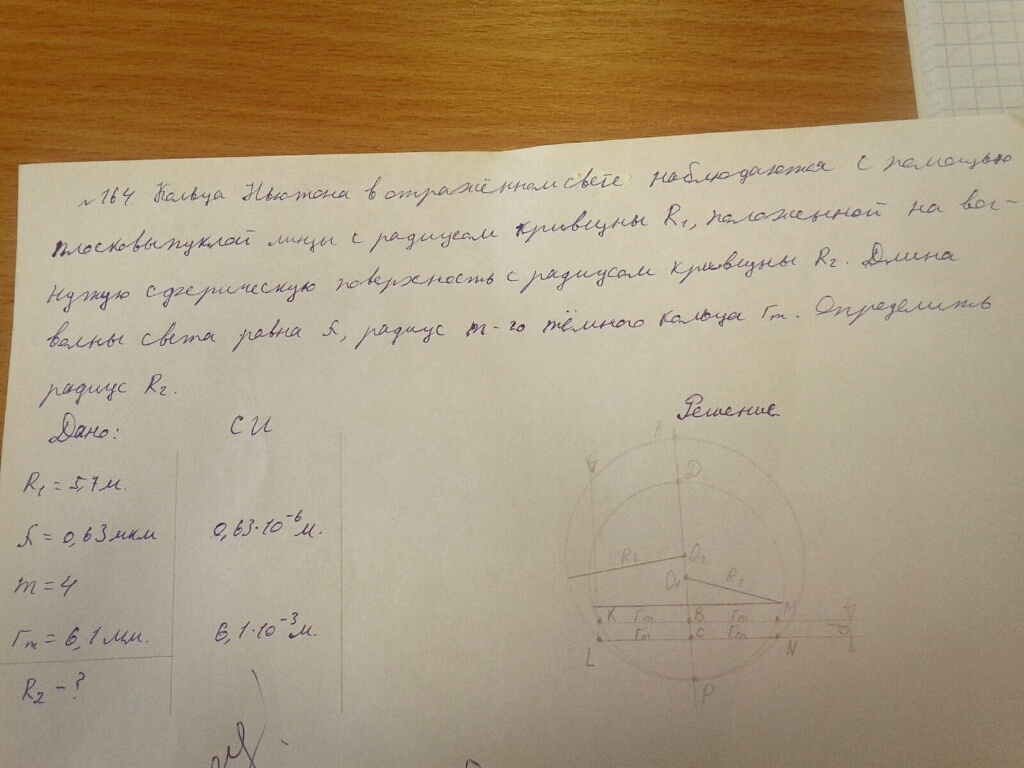 №164. Кольца Ньютона в отражённом свете наблюдаются с помощью
плосковыпуклой линзы с радиусом кривизны R₁, положенной на вог-
нутую сферическую поверхность с радиусом кривизны R₂. Длина
волны света равна λ, радиус m-го тёмного кольца rₘ. Определить
радиус R₂.
Дано: СИ Решение
R₁ = 5,7 м.
λ = 0,63 мкм 0,63·10⁻⁶ м.
m = 4
rₘ = 6,1 мм. 6,1·10⁻³ м.
R₂ - ?
A
D
R₂ O₂
O₁ R₁
K rₘ B rₘ M
rₘ C rₘ d
L N
P